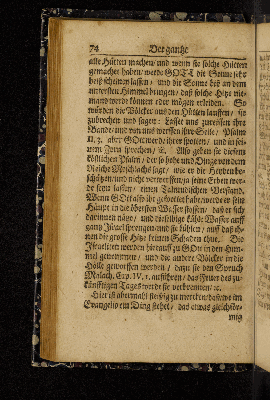 74 Der gantze
alle Hütten machen/ und wenn sie solche Hütten
gemachet haben/ werde GOTT die Sonne sehr
heiß scheinen lassen/ und die Sonne biß an dem
untersten Himmel bringen/ daß solche Hitze nie-
mand werde können oder mögen erleiden. So
würden die Völcker aus den Hütten lauffen/ sie
zubrechen und sagen: Lasset uns zerreissen ihre
Bande/ und von uns werffen ihre Seile/ Psalm
II, 3. aber GOtt werde ihrer spotten/ und in sei-
nem Zorn sprechen/ &c. Also geben sie diesem
köstlichen Psalm/ der so hohe und Dinge von dem
Reiche Messiä sagt/ wie er die Heyden be-
schützen/ und nicht verwerffen/ ja seine Erben wer-
de seyn lassen/ einen Talmudischen Verstand.
Wenn GOtt also ihr gespottet habe/ werde er sein
Häupt in die obersten Wasser stossen/ daß er sich
darinnen nässe/ und dieselbige kühle Wasser auff
gantz Israel sprengen/ und sie kühlen/ auff daß ih-
nen die grosse Hitze keinen Schaden thue. Die
Israeliten werden hierauff zu GOtt in den Him-
mel genommen/ und die andere Völcker in die
Hölle geworffen werden/ dazu sie den Spruch
Malach. Cap. IV. 1. anführen/ das Feuer des zu-
künfftigen Tages werde sie verbrennen/ &c.
Hier ist abermahl fleissig zu mercken/ daß wie im
Evangelio ein Ding stehet/ das etwas gleichför-
mig